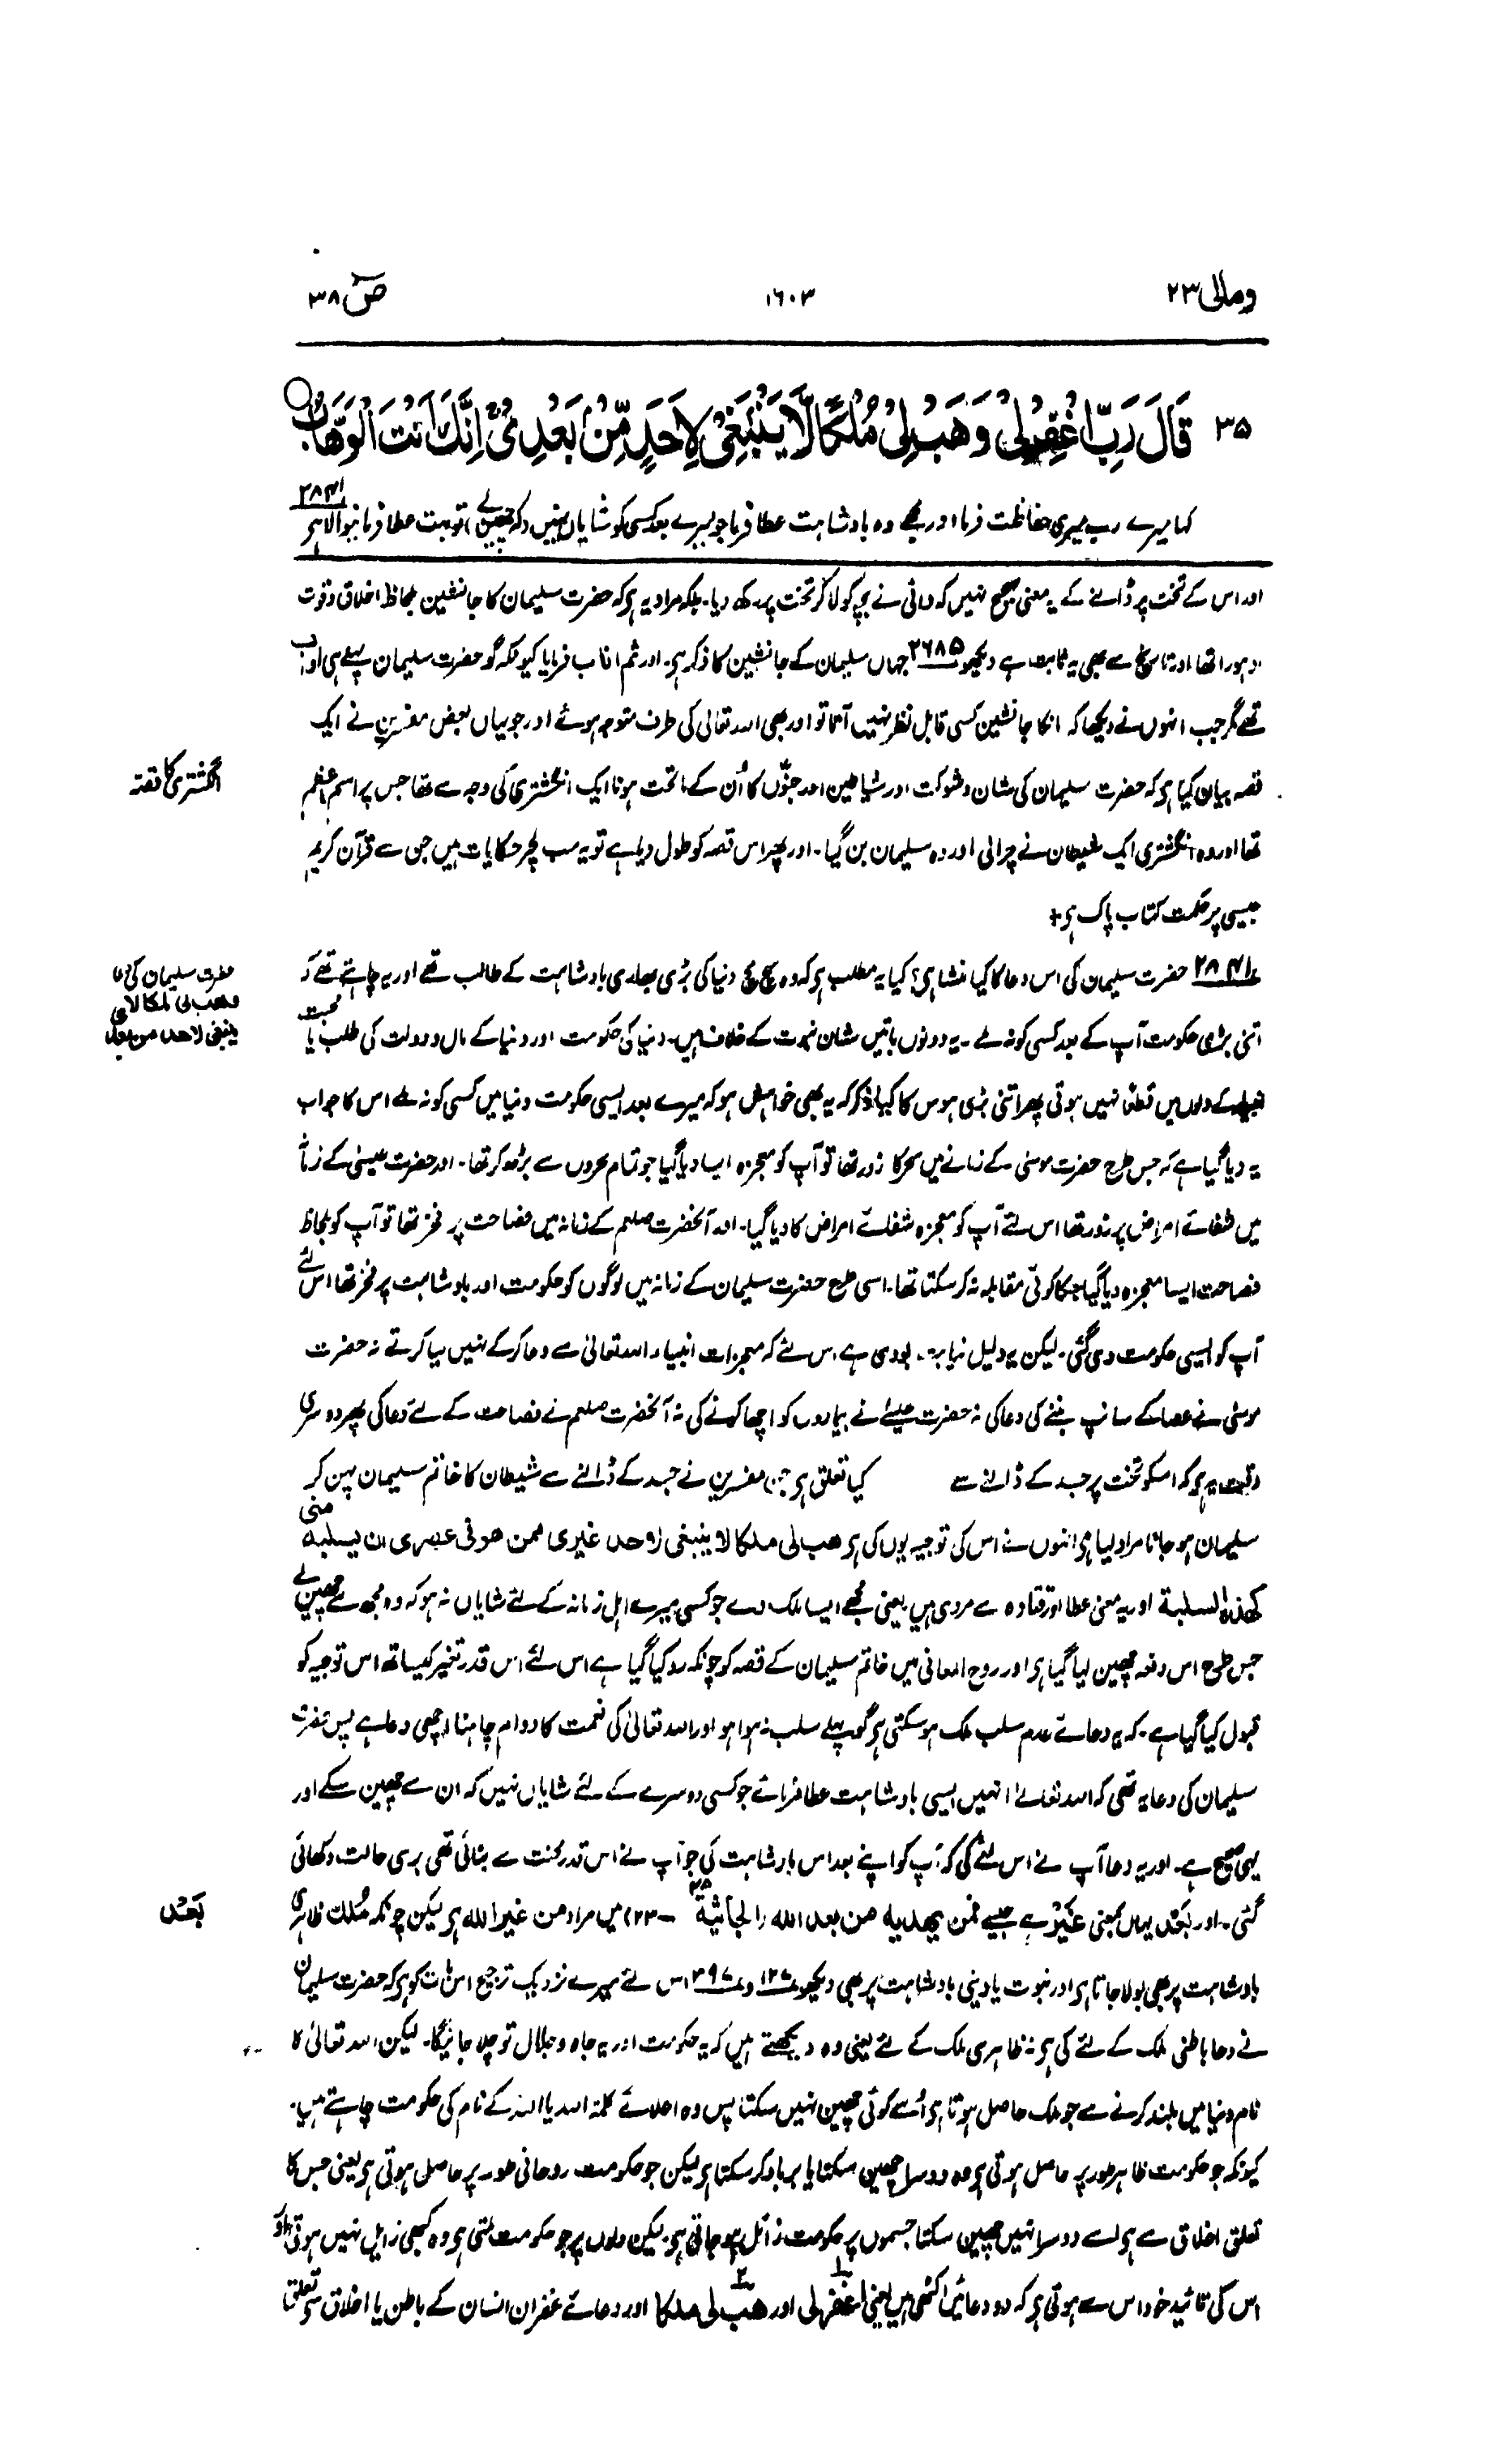 ومالی ۲۳
۱۶۰۳
صٓ ۳۸
۳۵ قَالَ رَبِّ اغْفِرْ لِیْ وَ هَبْ لِیْ مُلْكًا لَّا یَنْۢبَغِیْ لِاَحَدٍ مِّنْۢ بَعْدِیْ ۚ اِنَّكَ اَنْتَ الْوَهَّابُ ○
کہا میرے رب میری حفاظت فرما اور مجھے وہ بادشاہت عطا فرما جو میرے بعد کسی کو شایاں نہیں (کہ چھین لے) تو بہت عطا فرمانیوالا ہے ۲۸۴۱
اور اس کے تخت پر ڈالنے کے یہ معنی صحیح نہیں کہ دائی نے بچہ کو لا کر تخت پر رکھ دیا۔ بلکہ مراد یہ ہو کہ حضرت سلیمان کا جانشین بلحاظ اخلاق وقوت
ادہورا تھا اور تاریخ سے بھی یہ ثابت ہے دیکھو ۲۶۸۵ جہاں سلیمان کے جانشین کا ذکر ہو۔ اور ثم اناب فرمایا کیونکہ گو حضرت سلیمان پہلے ہی اواب
تھے مگر جب انہوں نے دیکھا کہ انکا جانشین کسی قابل نظر نہیں آتا تو اور بھی اللہ تعالی کی طرف متوجہ ہوئے اور جو یہاں بعض مفسرین نے ایک
قصہ بیان کیا ہو کہ حضرت سلیمان کی شان و شوکت اور شیاطین اور جنّوں کا اُن کے ماتحت ہونا ایک انگشتری کی وجہ سے تھا جس پر اسم اعظم
انگشتری کا قصہ
تھا اور وہ انگشتری ایک شیطان نے چرا لی اور وہ سلیمان بن گیا۔ اور پھر اس قصہ کو طول دیا ہے تو یہ سب لچر حکایات ہیں جن سے قرآن کریم
جیسی پر حکمت کتاب پاک ہو+
۲۸۴۱ حضرت سلیمان کی اس دعا کا کیا منشا ہو؟ کیا یہ مطلب ہو کہ وہ سچ مچ دنیا کی بڑی بھاری بادشاہت کے طالب تھے اور یہ چاہتے تھے کہ
حضرت سلیمان کی دعا
وهب لی ملکا لا ی
ینبغی لاحد من بعد
اتنی بڑی حکومت آپ کے بعد کسی کو نہ ملے۔ یہ دونوں باتیں شان نبوت کے خلاف ہیں۔ دنیا کی حکومت اور دنیا کے مال و دولت کی طلب یا محبت
انبیاء کے دلوں میں قطعاً نہیں ہوتی پھر اتنی بڑی ہوس کا کیا ذکر کہ یہ بھی خواہش ہو کہ میرے بعد ایسی حکومت دنیا میں کسی کو نہ ملے اس کا جواب
یہ دیا گیا ہے کہ جس طرح حضرت موسٰی کے زمانے میں سحر کا زور تھا تو آپ کو معجزہ ایسا دیا گیا جو تمام سحروں سے بڑھ کر تھا۔ اور حضرت عیسیٰ کے زمانہ
میں شفائے امراض پر زور تھا اس لئے آپ کو معجزہ شفائے امراض کا دیا گیا۔ اور آنحضرت صلعم کے زمانہ میں فصاحت پر فخر تھا تو آپ کو بلحاظ
فصاحت ایسا معجزہ دیا گیا جسکا کوئی مقابلہ نہ کر سکتا تھا۔ اسی طرح حضرت سلیمان کے زمانہ میں لوگوں کو حکومت اور بادشاہت پر فخر تھا اس لئے
آپ کو ایسی حکومت دی گئی۔ لیکن یہ دلیل نہایت بودی ہے اس لئے کہ معجزات انبیاء اللہ تعالیٰ سے دعا کر کے نہیں لیا کرتے نہ حضرت
موسٰی نے عصا کے سانپ بننے کی دعا کی نہ حضرت عیسٰے نے بیماروں کو اچھا کرنے کی نہ آنحضرت صلعم نے فصاحت کے لئے دعا کی پھر دوسری
دقت یہ ہو کہ اسکو تخت پر جسد کے ڈالنے سے کیا تعلق ہو جن مفسرین نے جسد کے ڈالنے سے شیطان کا خاتم سلیمان پہن کر
سلیمان ہو جانا مراد لیا ہو انہوں نے اس کی توجیہ یوں کی ہو هب لی ملکا لا ینبغی لاحد غیری ممن هو فی عصری ان یسلبه منی
کهذه السلبة اور یہ معنی عطا اور قتادہ سے مروی ہیں یعنی مجھے ایسا ملک دے جو کسی میرے اہل زمانہ کے لئے شایاں نہ ہو کہ وہ مجھ سے چھین لے
جس طرح اس دفعہ چھین لیا گیا ہو اور روح المعانی میں خاتم سلیمان کے قصہ کو چونکہ رد کیا گیا ہے اس لئے اس قدر تغیر کیساتھ اس توجیہ کو
قبول کیا گیا ہے۔ کہ یہ دعائے عدم سلب ملک ہو سکتی ہو گو پہلے سلب نہ ہوا ہو اور اللہ تعالیٰ کی نعمت کا دوام چاہنا اچھی دعا ہے پس حضرت
سلیمان کی دعا یہ تھی کہ اللہ تعالےٰ انہیں ایسی بادشاہت عطا فرمائے جو کسی دوسرے کے لئے شایاں نہیں کہ ان سے چھین سکے اور
یہی صحیح ہے۔ اور یہ دعا آپ نے اس لئے کی کہ آپ کو اپنے بعد اس بادشاہت کی جو آپ نے اس قدر محنت سے بنائی تھی بری حالت دکھائی
گئی۔ اور بَعْد یہاں بمعنی غَیْر ہے جیسے فمن یهدیه من بعد الله (الجاثیة ۴۵–۲۳) میں مراد من غیر الله ہو لیکن چونکہ مُلك ظاہری
بَعْد
بادشاہت پر بھی بولا جاتا ہو اور نبوت یا دینی بادشاہت پر بھی دیکھو اس لئے میرے نزدیک ترجیح اس بات کو ہو کہ حضرت سلیمان
نے دعا باطنی ملک کے لئے کی ہو نہ ظاہری ملک کے لئے یعنی وہ دیکھتے ہیں کہ یہ حکومت اور یہ جاہ و جلال تو چلا جائیگا۔ لیکن اللہ تعالیٰ کا
نام دنیا میں بلند کرنے سے جو ملک حاصل ہوتا ہو اُسے کوئی چھین نہیں سکتا پس وہ اعلائے کلمۃ اللہ یا اللہ کے نام کی حکومت چاہتے ہیں۔
کیونکہ جو حکومت ظاہر طور پر حاصل ہوتی ہو وہ دوسرا چھین سکتا یا برباد کر سکتا ہو لیکن جو حکومت روحانی طور پر حاصل ہوتی ہو یعنی جس کا
تعلق اخلاق سے ہو اسے دوسرا نہیں چھین سکتا جسموں پر حکومت زائل ہو جاتی ہو۔ لیکن دلوں پر جو حکومت ملتی ہو وہ کبھی زایل نہیں ہوتی اور
اس کی تائید خود اس سے ہوتی ہو کہ دو دعائیں اکٹھی ہیں یعنی ۱ اغفر لی اور ۲ هب لی ملکا اور دعائے غفران انسان کے باطن یا اخلاق سے تعلق